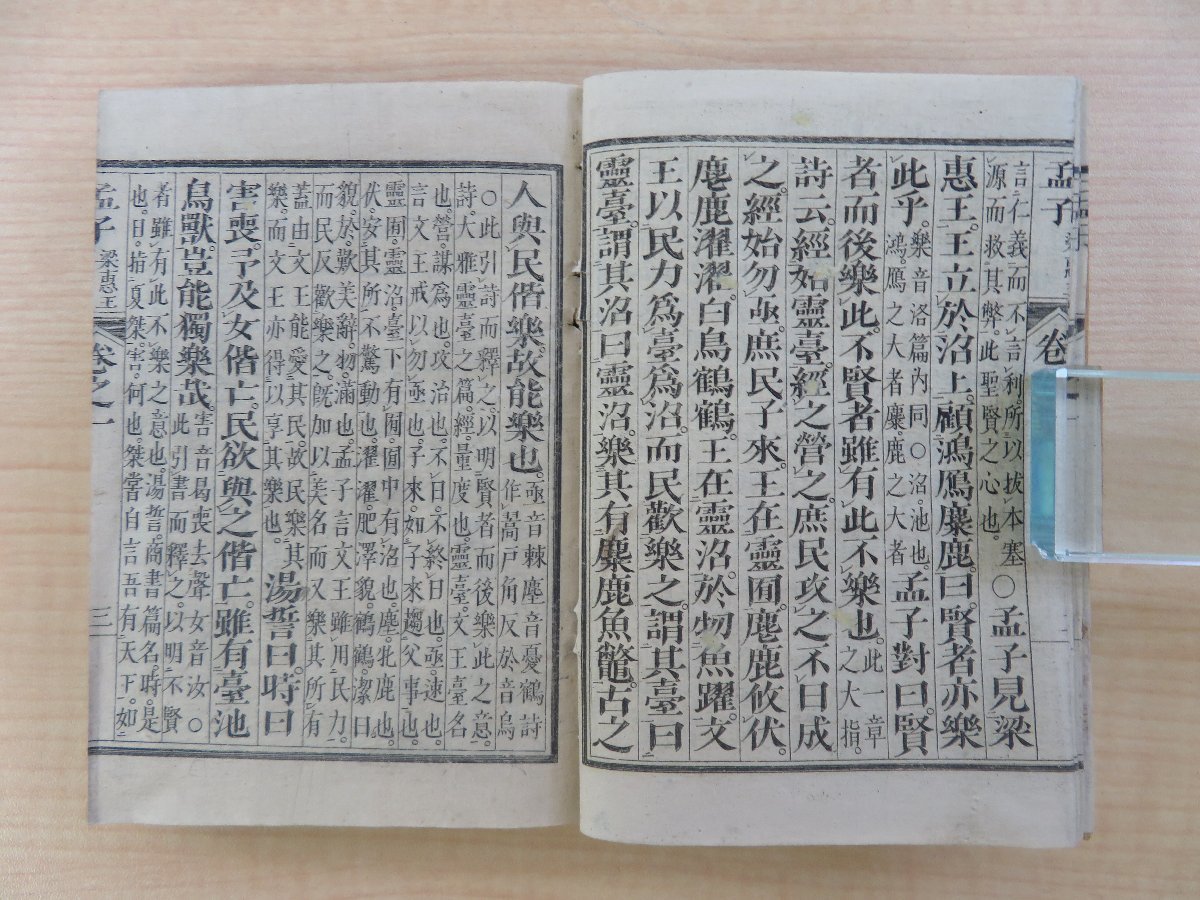 孟子
卷
言仁義而不言利所以拔本塞
源而救其弊。此聖賢之心也。
○孟子見梁
惠王。王立於沼上。顧鴻鴈麋鹿。曰賢者亦樂
此乎。
樂音洛篇内同○沼。池也。
鴻。鴈之大者麋。鹿之大者
孟子對曰。賢
者而後樂此。不賢者雖有此不樂也。
此一章
之大指。
詩云。經始靈臺。經之營之。庶民攻之不日成
之。經始勿亟。庶民子來。王在靈囿。麀鹿攸伏。
麀鹿濯濯。白鳥鶴鶴。王在靈沼。於牣魚躍文
王以民力爲臺爲沼。而民歡樂之。謂其臺曰
靈臺。謂其沼曰靈沼。樂其有麋鹿魚鼈。古之
人與民偕樂。故能樂也。
亟音棘麀音憂鶴詩
作翯戶角反於音烏
○此引詩而釋之。以明賢者而後樂此之意。
詩大雅靈臺之篇。經。量度也。靈臺。文王臺名
也。營。謀爲也。攻。治也。不日。不終日也。亟。速也。
言文王戒以勿亟也。子來。如子來趨父事也。
靈囿。靈沼。臺下有囿。囿中有沼也。麀。牝鹿也。
伏。安其所。不驚動也。濯濯。肥澤貌。鶴鶴。潔白
貌。於。歎美辭。牣。滿也。孟子言文王雖用民力。
而民反歡樂之。既加以美名。而又樂其所有
蓋由文王能愛其民。故民樂其
樂。而文王亦得以享其樂也。
湯誓曰。時日
害喪。予及女偕亡。民欲與之偕亡。雖有臺池
鳥獸。豈能獨樂哉。
害音曷喪去聲女音汝○
此引書而釋之。以明不賢
者雖有此不樂之意也。湯誓。商書篇名。時。是
也。日。指夏桀。害。何也。桀嘗自言吾有天下。如
孟子
梁惠王
卷之一
三